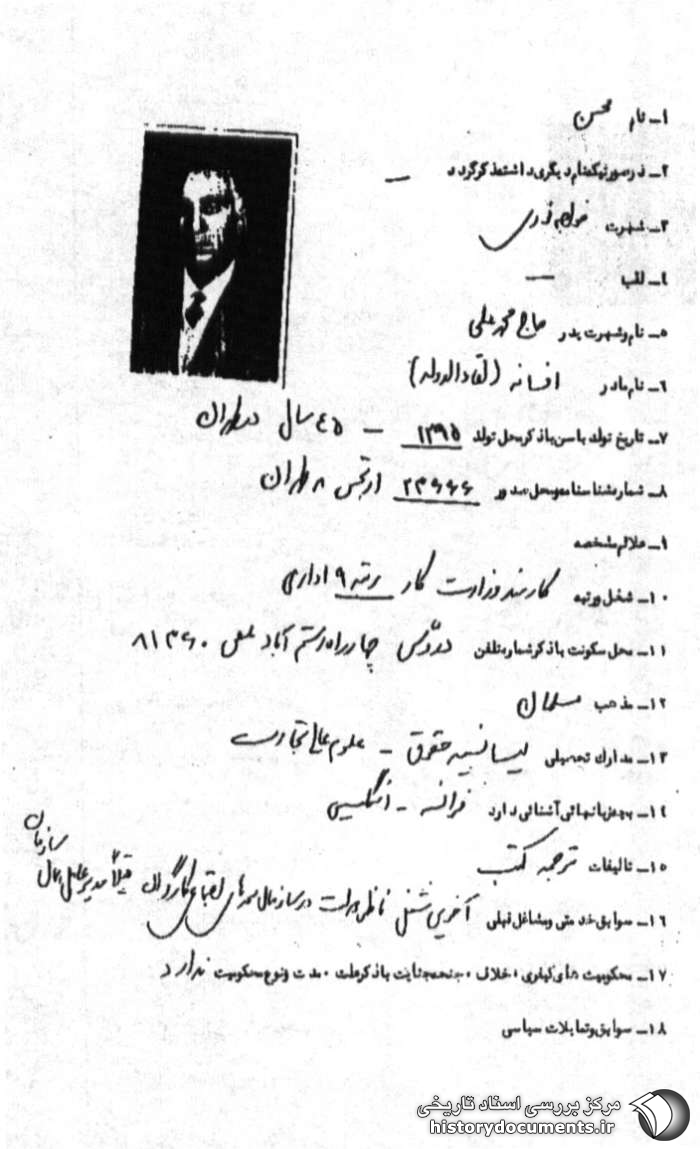 ۱ـ نام محسن
۲ـ در صورتیکه نام دیگری داشته ذکر گردد ـ
۳ـ شهرت خواجه نوری
۴ـ لقب ـ
۵ـ نام و شهرت پدر حاج محمد علی
۶ـ نام مادر افسانه (لقاءالدوله)
۷ـ تاریخ تولد یا سن با ذکر محل تولد ۱۲۹۵ ـ ۴۵ سال در طهران
۸ـ شماره شناسنامه و محل صدور ۲۳۶۶۶ از بخش ۸ طهران
۹ـ علائم مشخصه
۱۰ـ شغل و رتبه کارمند وزارت کار رتبه ۹ اداری
۱۱ـ محل سکونت با ذکر شماره تلفن دروس چهارراه رستم آباد تلفن ۸۱۳۶۰
۱۲ـ مذهب مسلمان
۱۳ـ مدارک تحصیلی لیسانسیه حقوق ـ علوم عالی تجارت
۱۴ـ بچه زبانهائی آشنائی دارد فرانسه ـ انگلیسی
۱۵ـ تالیفات ترجمه کتب
۱۶ـ سوابق خدمتی و مشاغل قبلی آخرین شغل ناظر دولت در سازمان کارگران قبلاً مدیر عامل سازمان
۱۷ـ محکومیت های کیفری، خلاف، جنحه جنایت با ذکر علت، مدت و نوع محکومیت ندارد
۱۸ـ سوابق و تمایلات سیاسی
مرکز بررسی اسناد تاریخی
historydocuments.ir